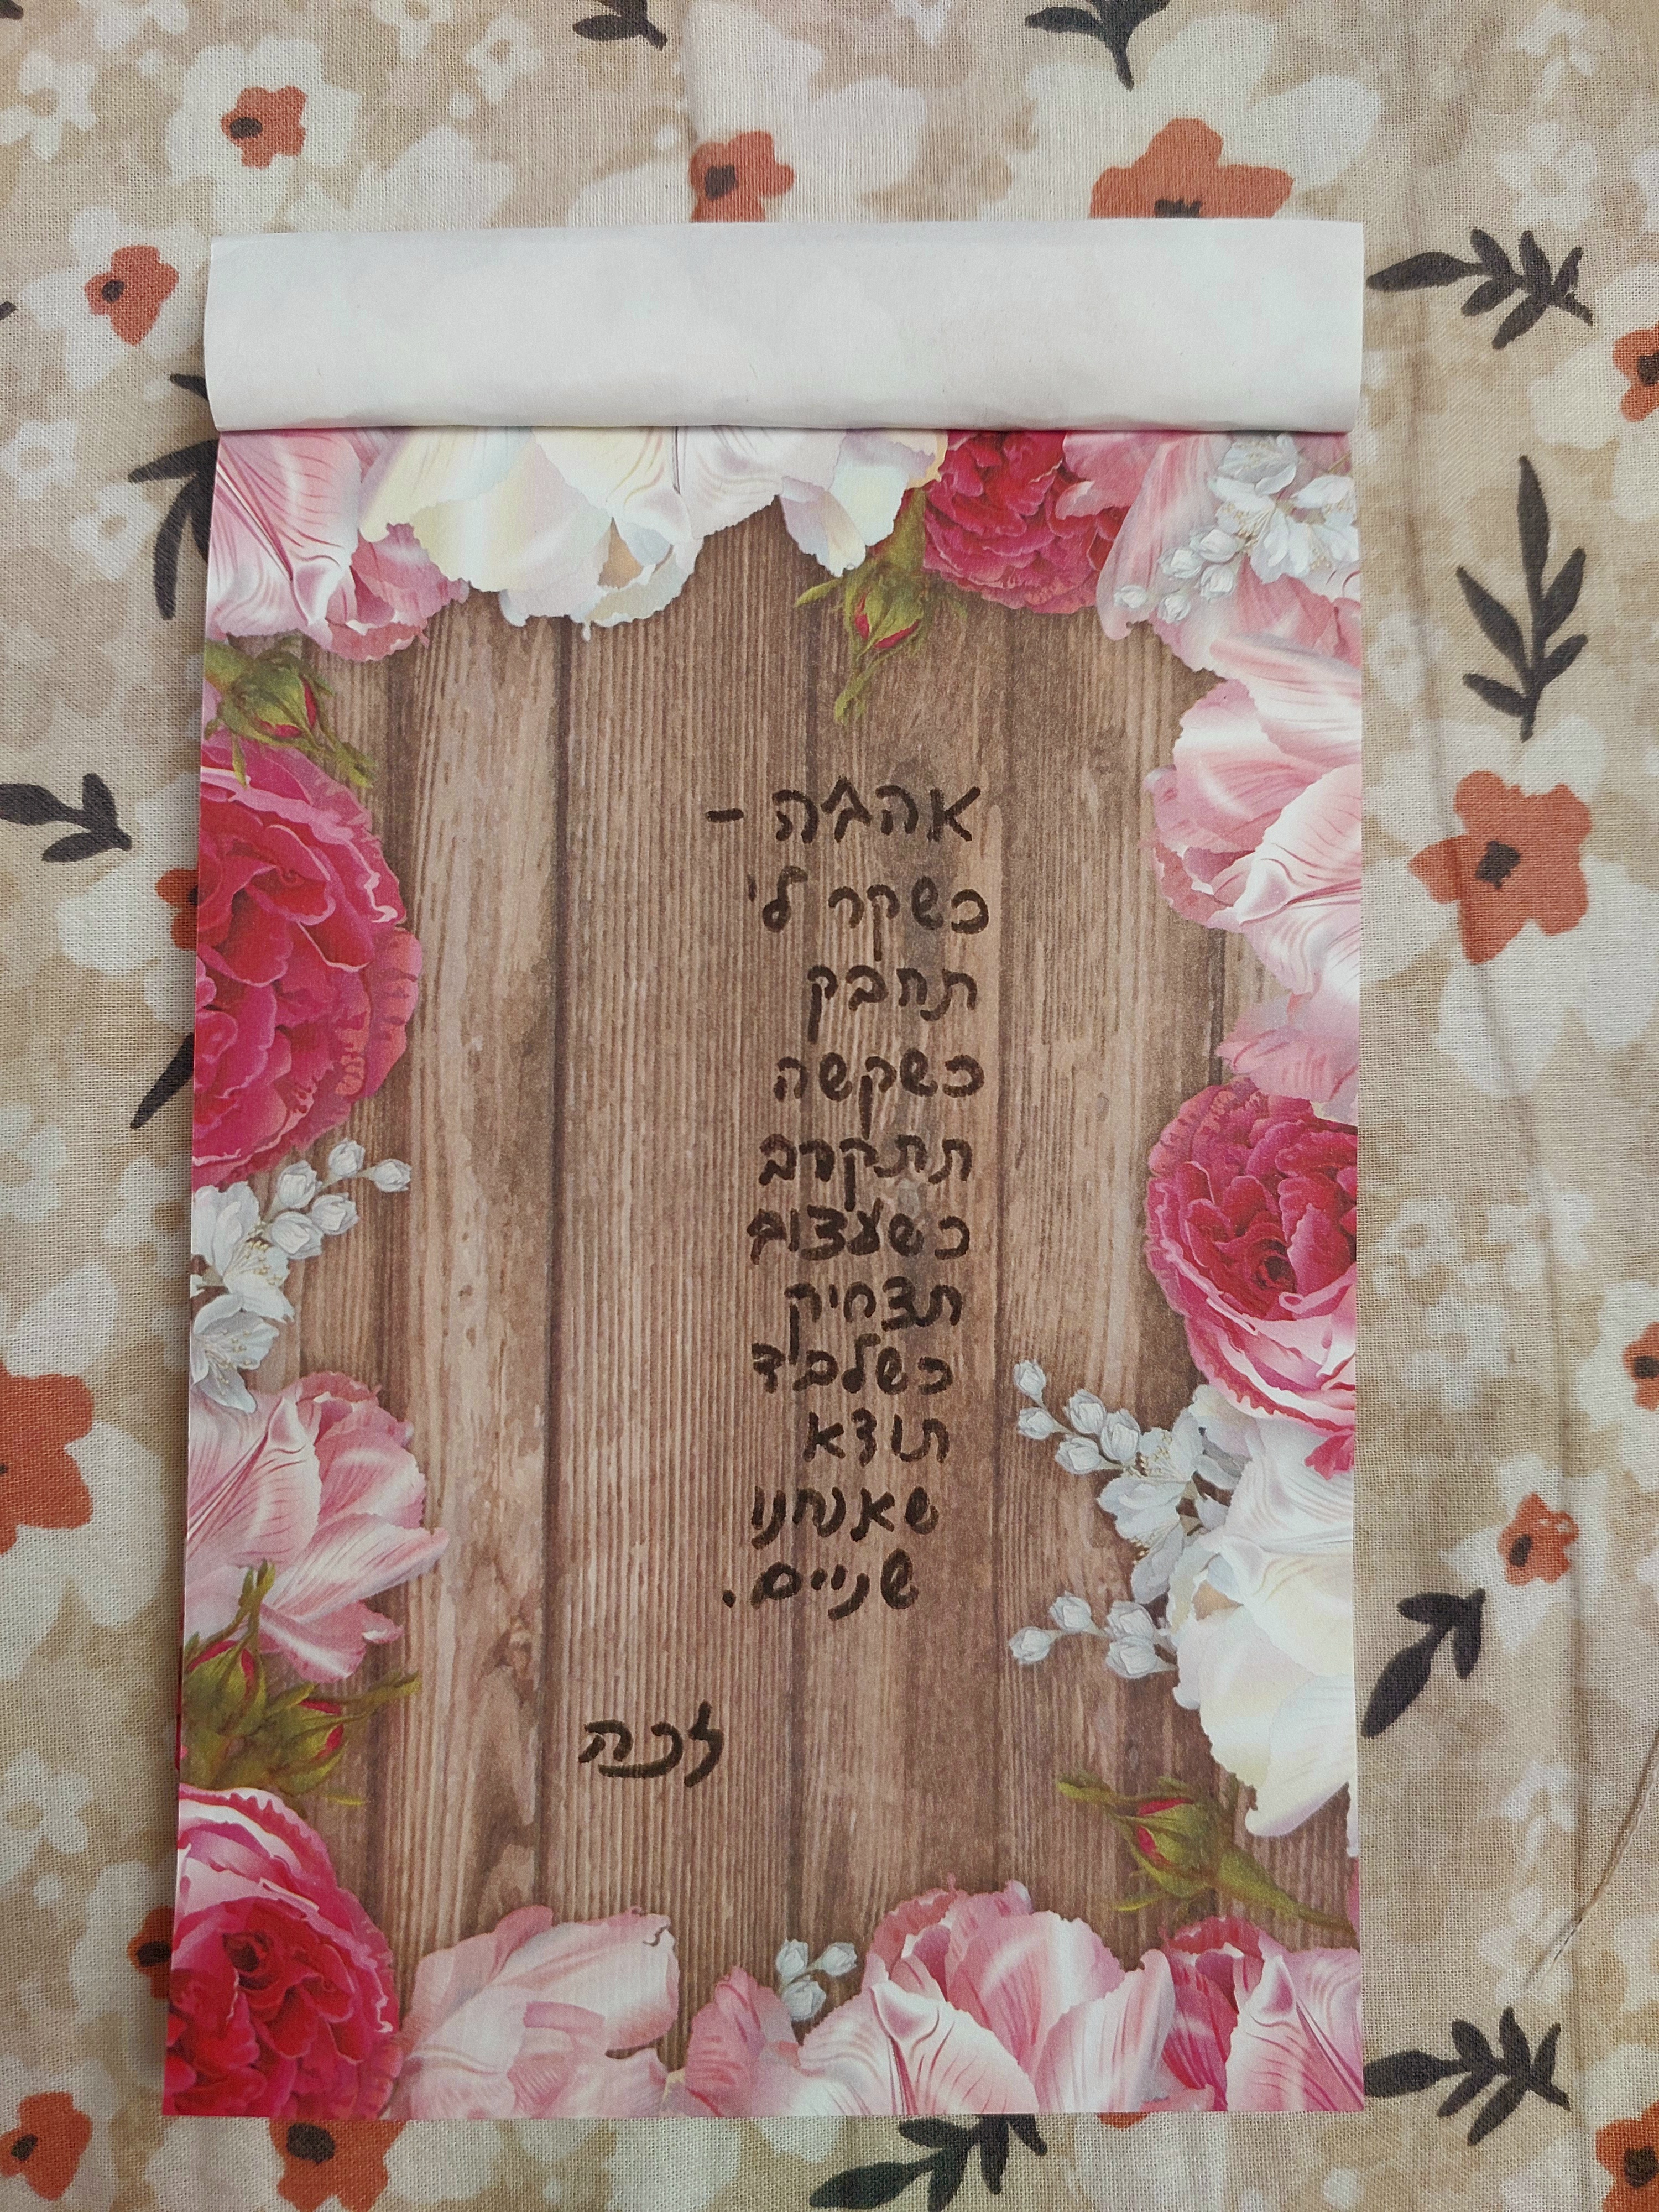 אהבה -
כשקר לי
תחבק
כשקשה
תתקרב
כשעצוב
תצחיק
כשלביד
תודא
שאנחנו
שניים.
זכה